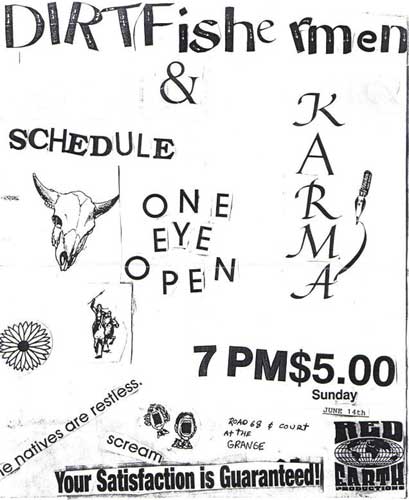 DIRTFishermen
&
KARMA
SCHEDULE
ONE
EYE
OPEN
7 PM $5.00
Sunday
JUNE 14th
e natives are restless.
scream
ROAD 68 & COURT
AT THE
GRANGE
RED
EARTH
PRODUCTIONS
Your Satisfaction is Guaranteed!